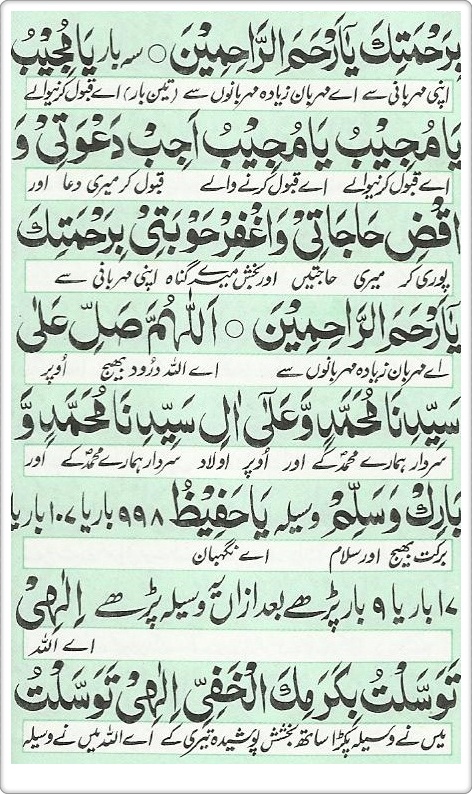 بِرَحْمَتِكَ يَآ اَرْحَمَ الرَّاحِمِيْنَ ○ سہ بار يَا مُجِيْبُ
اپنی مہربانی سے اے مہربان زیادہ مہربانوں سے (تین بار) اے قبول کرنیوالے
يَا مُجِيْبُ يَا مُجِيْبُ اَجِبْ دَعْوَتِيْ وَ
اے قبول کرنیوالے اے قبول کرنے والے قبول کر میری دعا اور
اقْضِ حَاجَاتِيْ وَاغْفِرْ حَوْبَتِيْ بِرَحْمَتِكَ
پوری کر میری حاجتیں اور بخش میرے گناہ اپنی مہربانی سے
يَآ اَرْحَمَ الرَّاحِمِيْنَ ○ اَللّٰهُمَّ صَلِّ عَلٰى
اے مہربان زیادہ مہربانوں سے اے اللہ درود بھیج اُوپر
سَيِّدِنَا مُحَمَّدٍ وَّعَلٰٓى اٰلِ سَيِّدِنَا مُحَمَّدٍ وَّ
سردار ہمارے محمدؐ کے اور اُوپر اولاد سردار ہمارے محمدؐ کے اور
بَارِكْ وَسَلِّمْ وسیلہ يَا حَفِيْظُ ۹۹۸ بار یا ۱۰۷ بار یا
برکت بھیج اور سلام اے نگہبان
۱۷ بار یا ۹ بار پڑھے بعد ازاں یہ وسیلہ پڑھے اِلٰهِيْ
اے اللہ
تَوَسَّلْتُ بِكَرَمِكَ الْخَفِيِّ اِلٰهِيْ تَوَسَّلْتُ
میں نے وسیلہ پکڑا ساتھ بخشش پوشیدہ تیری کے اے اللہ میں نے وسیلہ